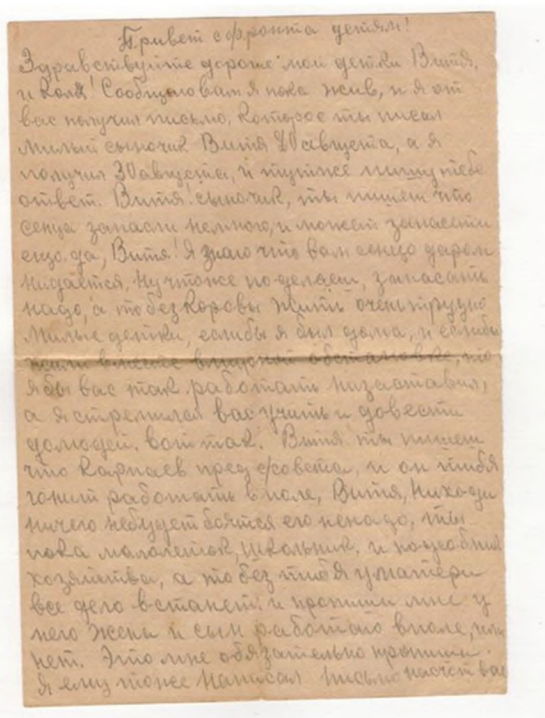 Привет с фронта детям!
Здравствуйте дороже мои детки Витя,
и Коля! Сообщаю вам я пока жив, и я от
вас получил письмо, которое ты писал
милый сыночик Витя 20 августа, а я
получил 30 августа, и тутже пишу тебе
ответ. Витя! сыночик, ты пишеш что
сенца запасли немного, и может запасети
ещо, да, Витя! Я знаю что вам сенцо даром
нидаётся, ну чтоже поделаеш, запасать
надо, а то без коровы жить очень трудно
милые детки, еслибы я был дома, и еслибы
жили в обстановке, то
я бы вас так работать незаставил,
а я стремился вас учить и довести
долюдей. вот так. Витя ты пишеш
что Карпаев пред с/совета, и он тибя
гонит работать в поле, Витя, ниходи
ничего небудет боятся его ненадо, ты
пока малолеток, школьник, и
хозяйства, а то без тибя у матери
все дело встанет. и пропиши мне у
него жена и сын работают в поле, или
нет. Это мне обязательно пропиши.
Я ему тоже написал письмо насчёт вас